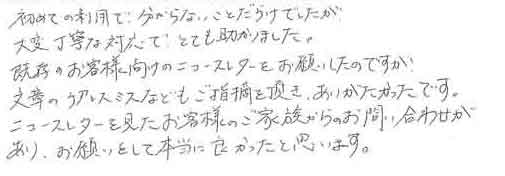 初めての利用で、分からないことだらけでしたが
大変丁寧な対応で、とても助かりました。
既存のお客様向けのニュースレターをお願いしたのですが、
文章のケアレスミスなどもご指摘を頂き、ありがたかったです。
ニュースレターを見たお客様のご家族からのお問い合わせが
あり、お願いをして本当に良かったと思います。